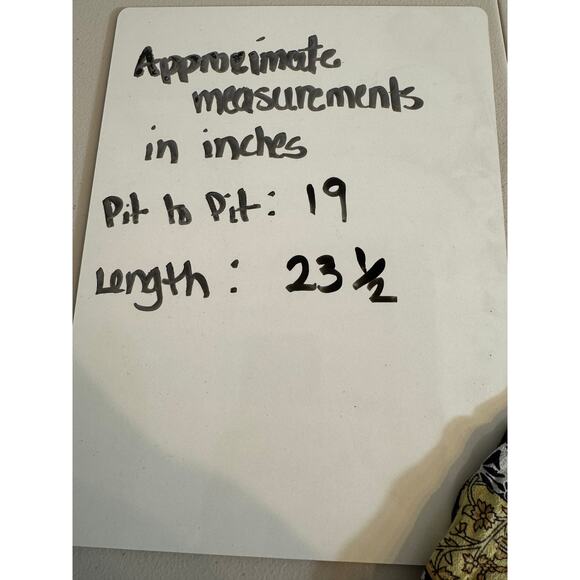 Approximate
measurements
in inches
Pit to Pit: 19
Length: 23 1/2